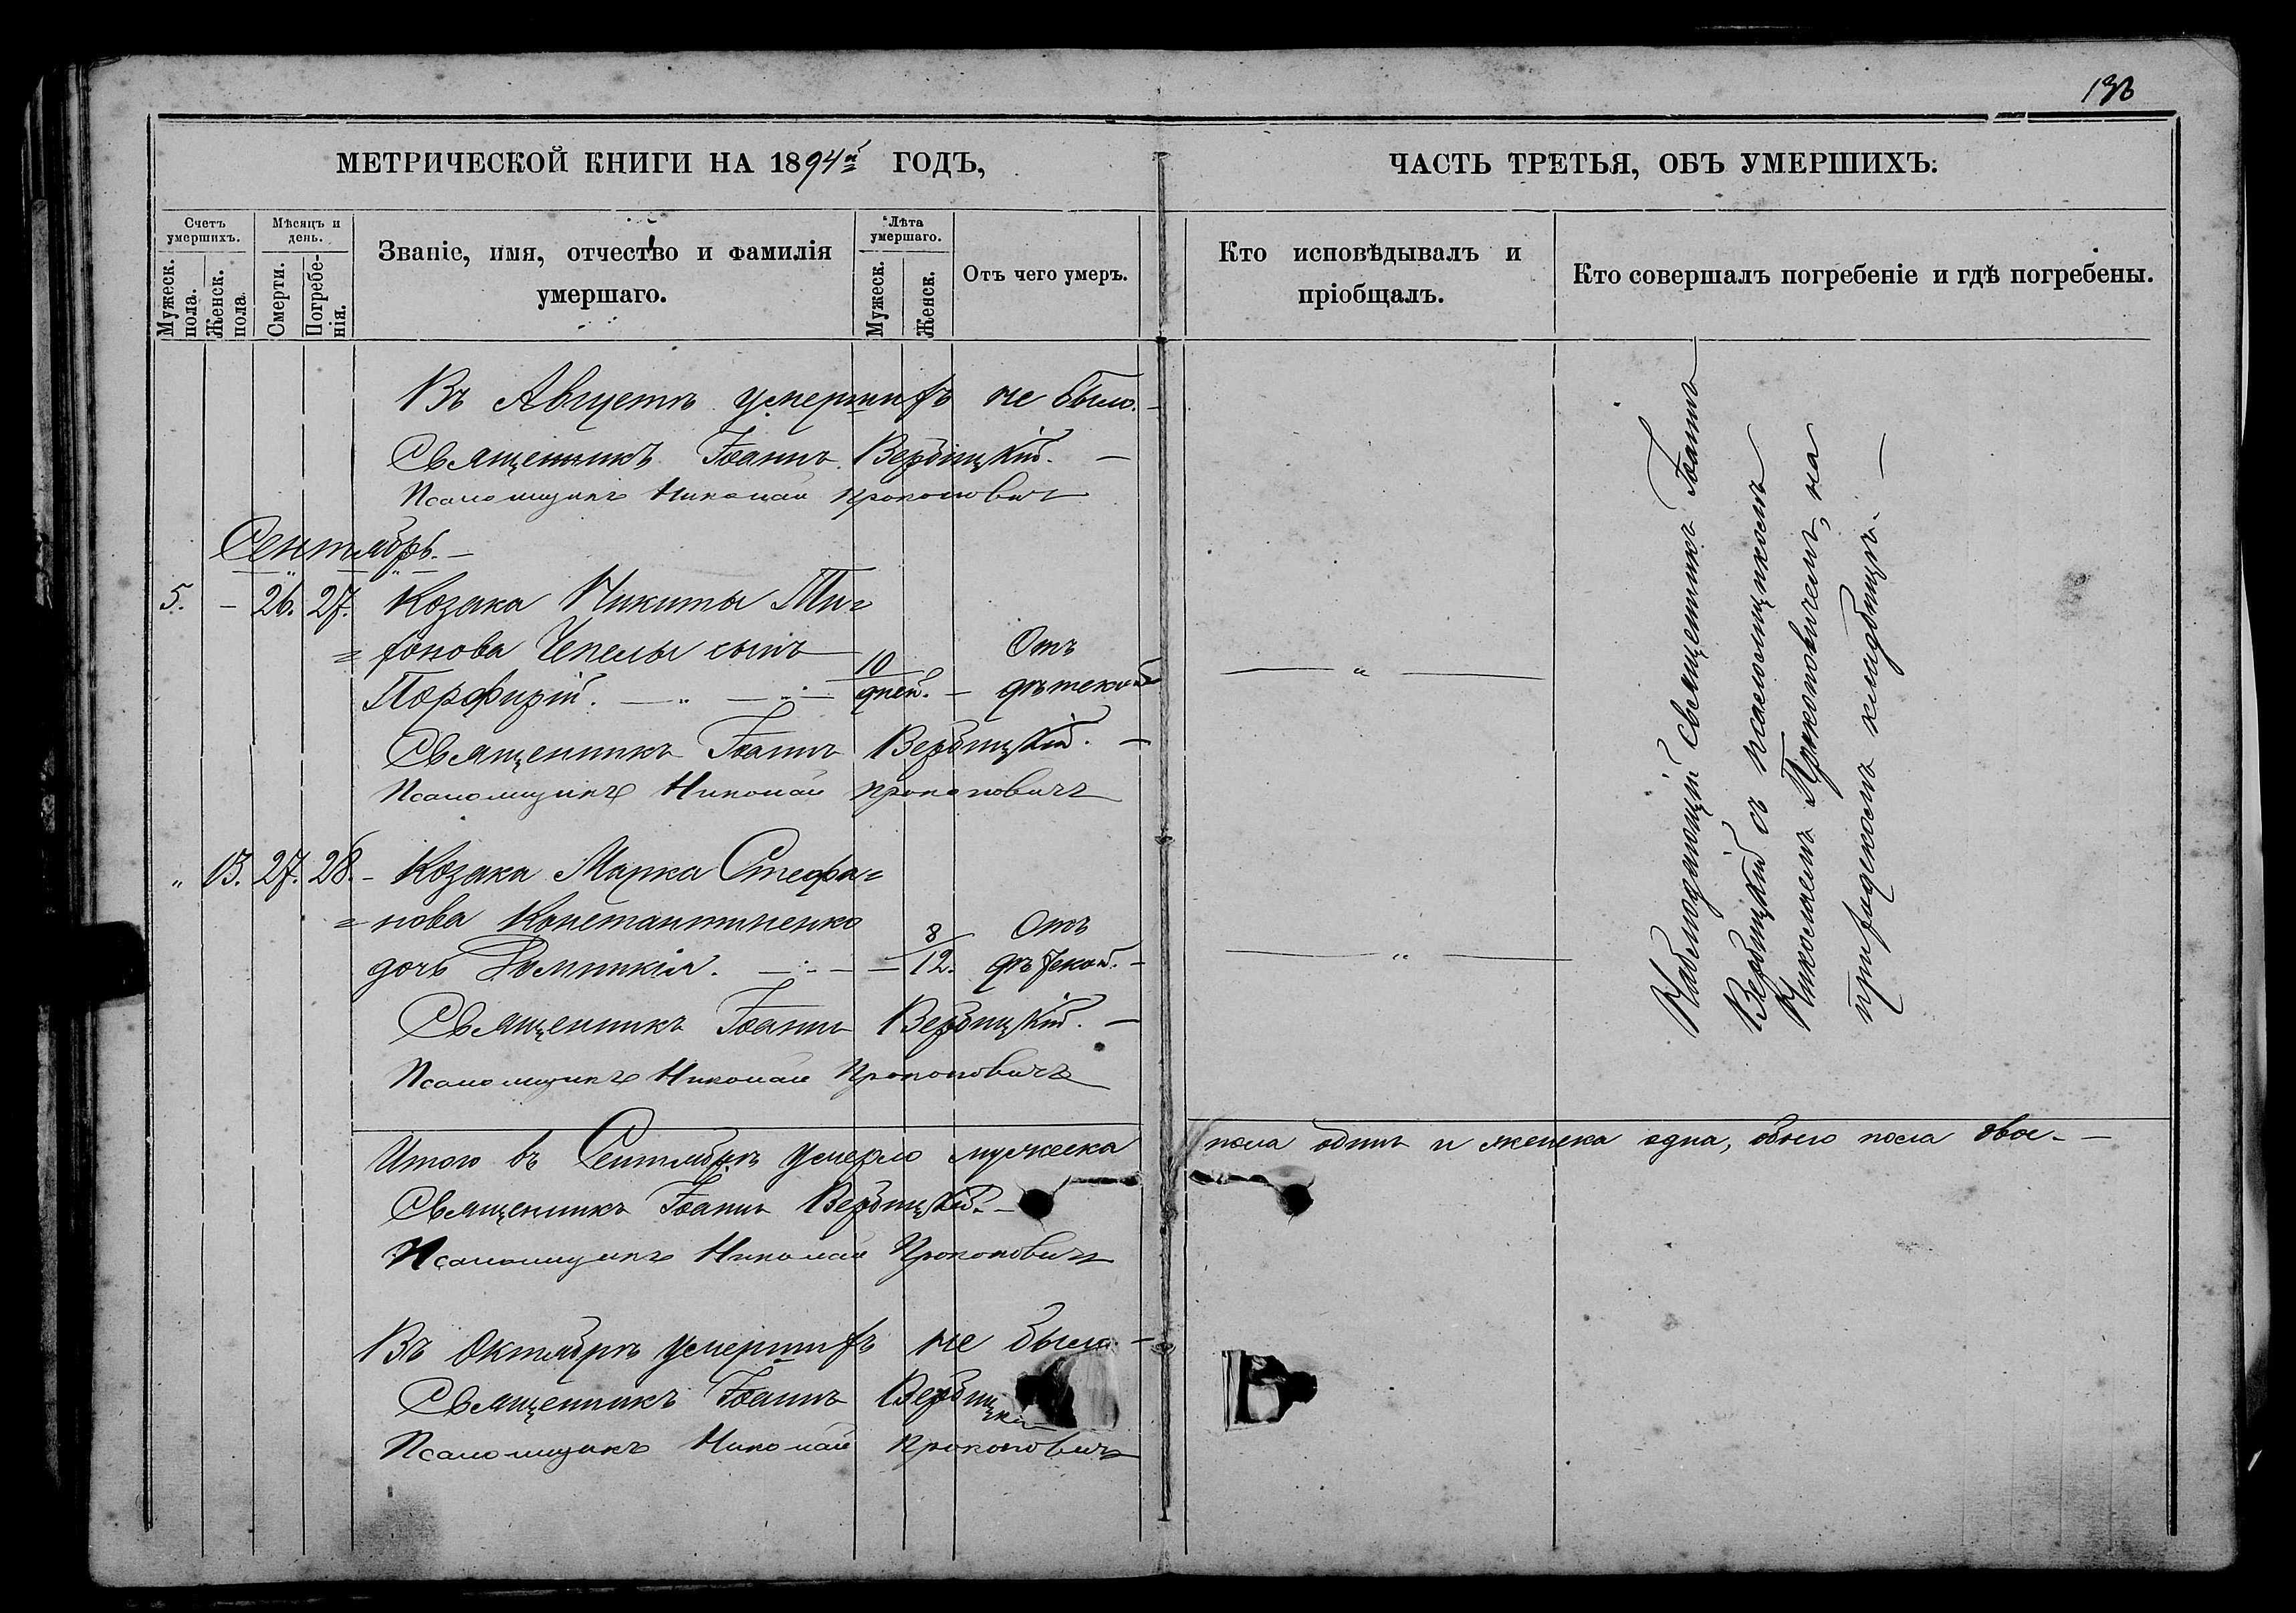 МЕТРИЧЕСКОЙ КНИГИ НА 1894й ГОДЪ,
ЧАСТЬ ТРЕТЬЯ, ОБЪ УМЕРШИХЪ:
Счетъ умершихъ.
Мужеск. пола.
Женск. пола.
Мѣсяцъ и день.
Смерти.
Погребенія.
Званіе, имя, отчество и фамилія
умершаго.
Лѣта умершаго.
Мужеск.
Женск.
Отъ чего умеръ.
Кто исповѣдывалъ и
пріобщалъ.
Кто совершалъ погребеніе и гдѣ погребены.
Въ Августѣ умершихъ не было. —
Священникъ Іоаннъ Вербицкій. —
Псаломщикъ Николай Прокоповичъ
Сентябрь. —
5. — 26. 27. Козака Никиты Ти=
=хонова Чепелы сынъ 10 Отъ
Порфирій. — дней. — дѣтской
Священникъ Іоаннъ Вербицкій. —
Псаломщикъ Николай Прокоповичъ
„ 13. 27. 28. — Козака Марка Стефа=
=нова Константиненко 8 Отъ
дочь Домникія. — 12. дѣтской. —
Священникъ Іоаннъ Вербицкій. —
Псаломщикъ Николай Прокоповичъ
Наблюдающій священникъ Іоаннъ
Вербицкій съ псаломщикомъ
Николаемъ Прокоповичемъ, на
приходскомъ кладбищѣ. —
Итого въ Сентябрѣ умерло мужеска пола одинъ и женска одна, обоего пола двое. —
Священникъ Іоаннъ Вербицкій. —
Псаломщикъ Николай Прокоповичъ
Въ Октябрѣ умершихъ не было. —
Священникъ Іоаннъ Вербицкій
Псаломщикъ Николай Прокоповичъ